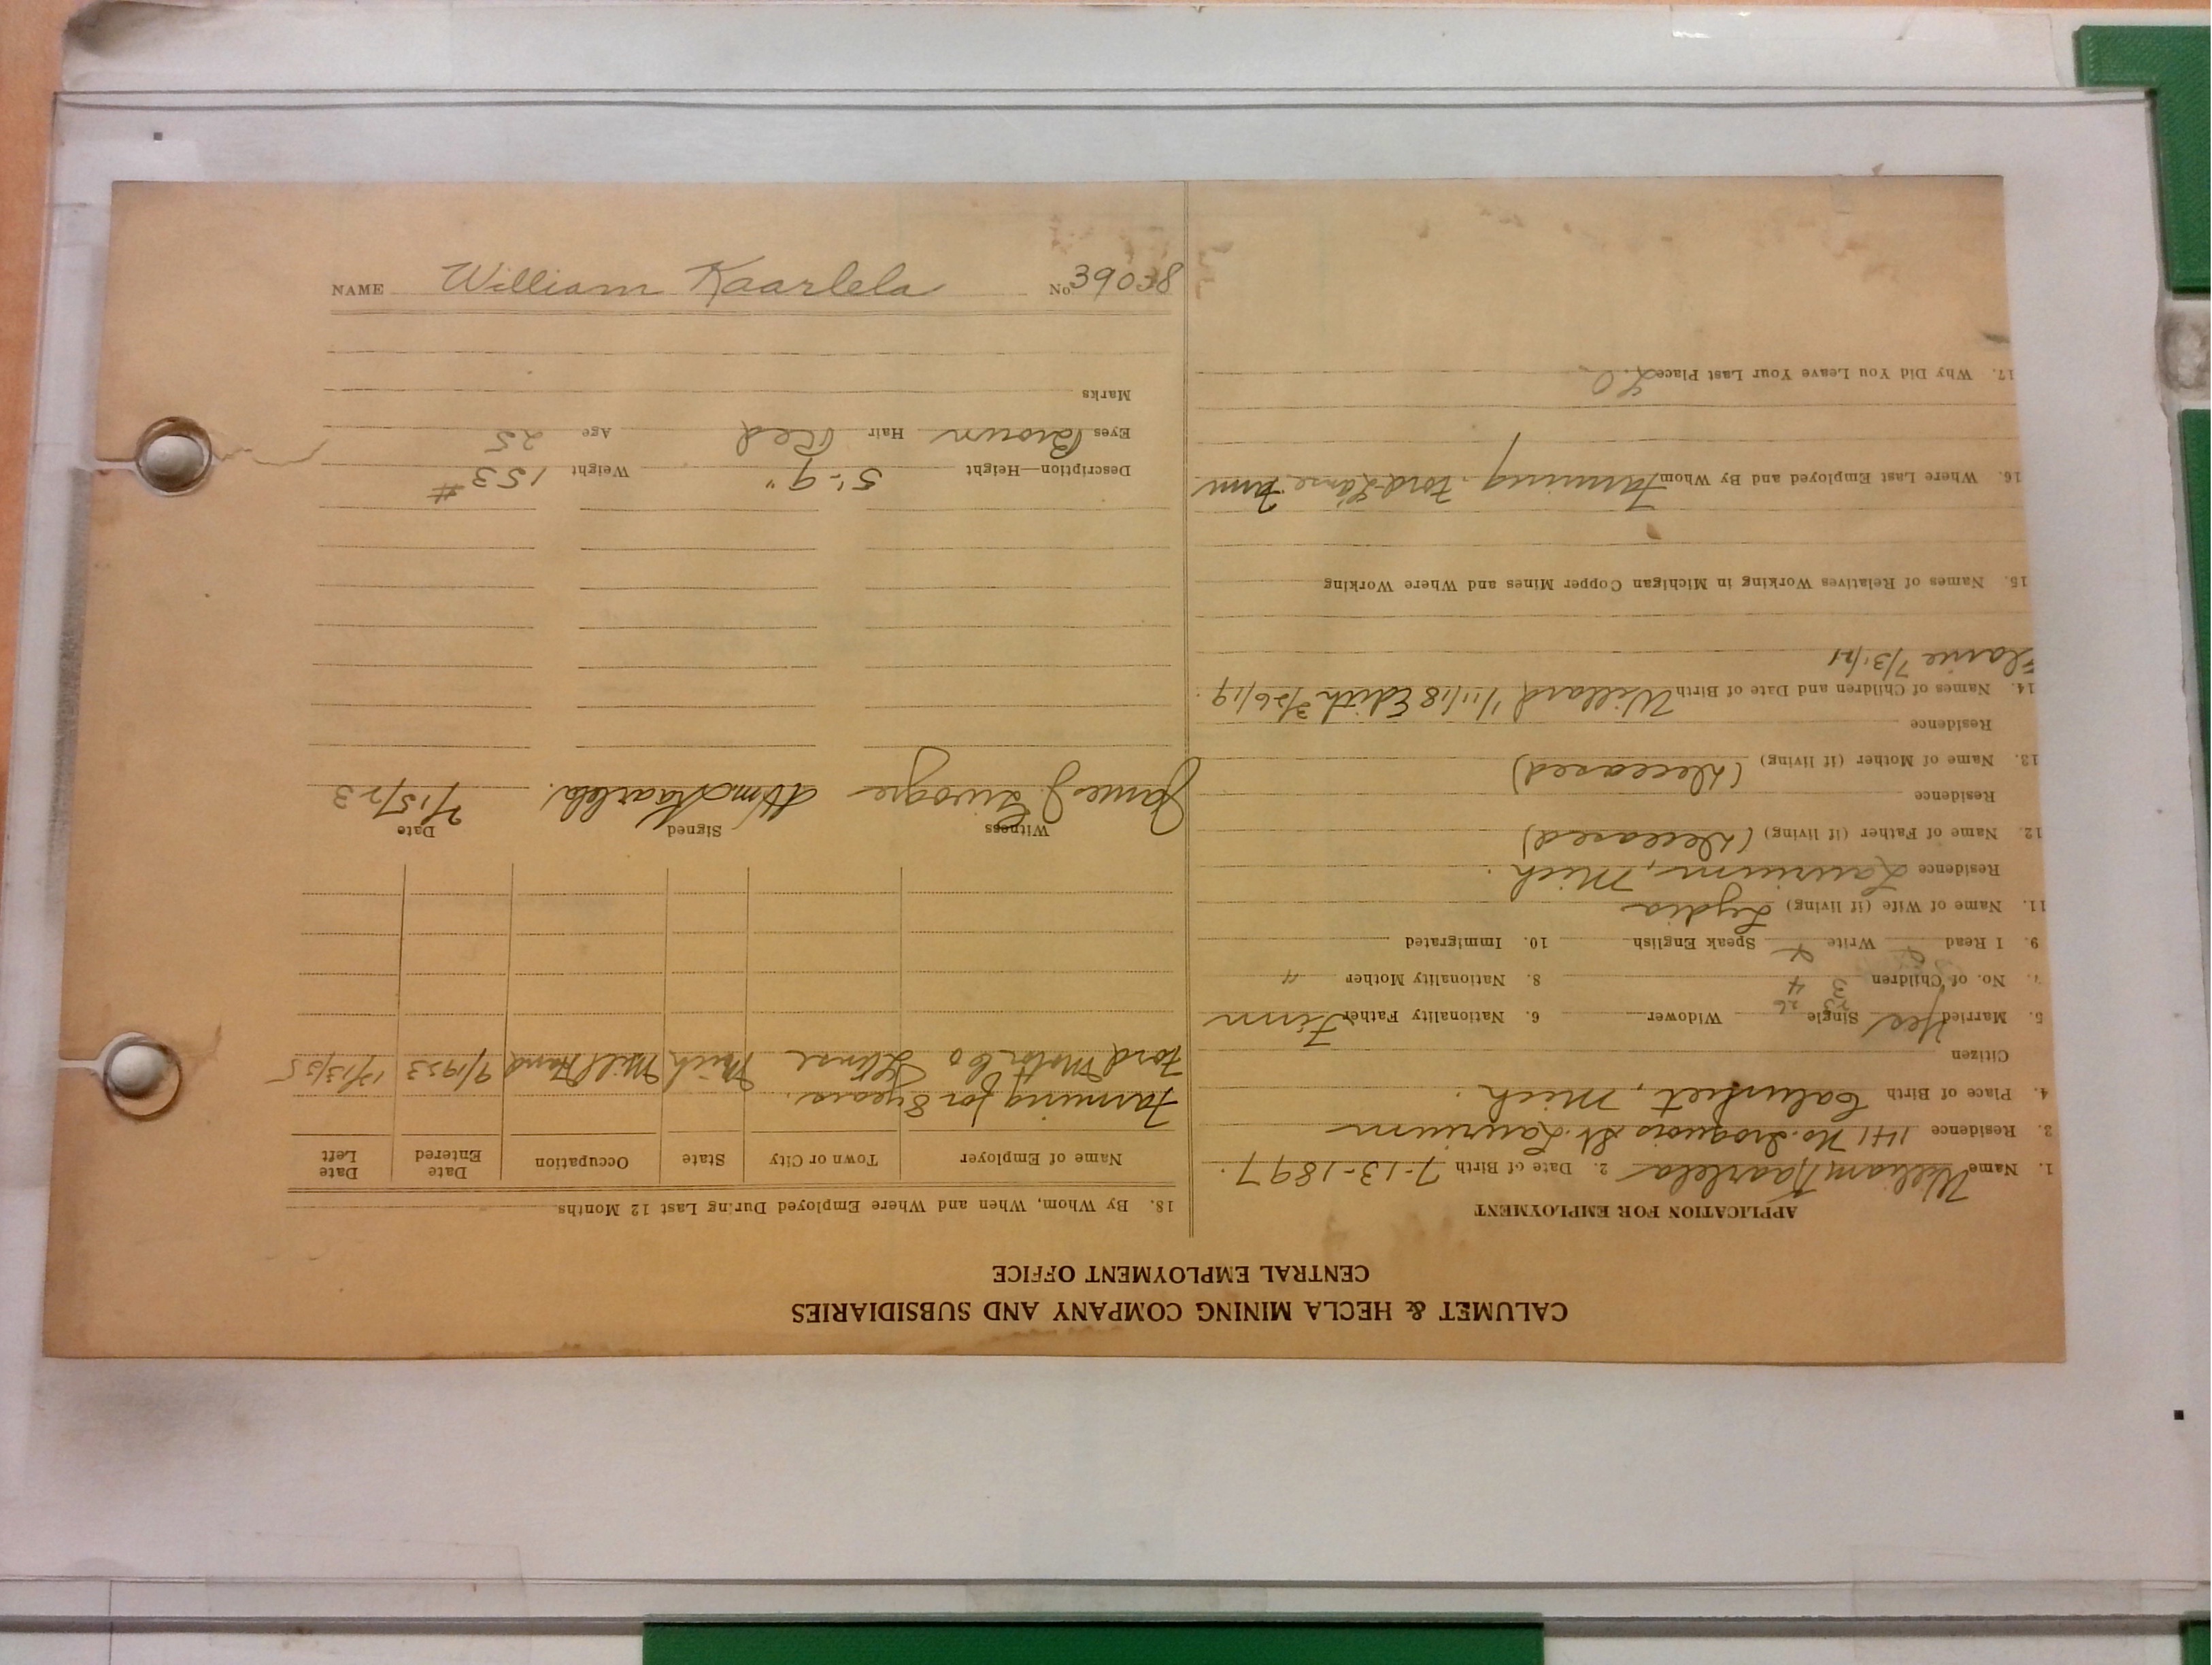 CALUMET & HECLA MINING COMPANY AND SUBSIDIARIES
CENTRAL EMPLOYMENT OFFICE
APPLICATION FOR EMPLOYMENT
1. Name William Kaarlela 2. Date of Birth 7-13-1897.
3. Residence 141 No. Iroquois St. Laurium
4. Place of Birth Calumet, Mich.
Citizen
5. Married Yes Single Widower 6. Nationality Father Finn
23 26
7. No. of Children 3 4 8. Nationality Mother "
9. I Read Write Speak English 10. Immigrated
11. Name of Wife (if living) Lydia
Residence Laurium, Mich.
12. Name of Father (if living) (Deceased)
Residence
13. Name of Mother (if living) (Deceased)
Residence
14. Names of Children and Date of Birth Willard 1/11/18 Edith 3/26/19.
7/31/21
15. Names of Relatives Working in Michigan Copper Mines and Where Working
16. Where Last Employed and By Whom Farming. Ford L'anse
17. Why Did You Leave Your Last Place
18. By Whom, When and Where Employed During Last 12 Months
Name of Employer Town or City State Occupation Date Entered Date Left
Farming for 8 years.
Ford Motor Co L'Anse Mich Mill Hand 9/1923 12/13/25
Witness Signed Date
James J. Wm Kaarlela. /15/23
Description—Height 5'-9" Weight 153#
Eyes Brown Hair Red Age 25
Marks
NAME William Kaarlela No 39038